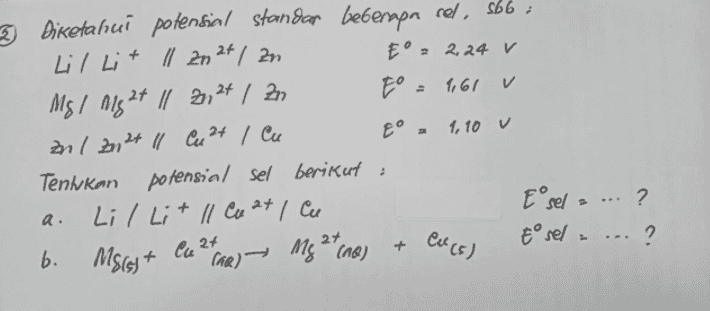 2 Diketahui potensial standar beberapa sel, sbb :
Li / Li⁺ // Zn²⁺ / Zn E° = 2,24 V
Mg / Mg²⁺ // Zn²⁺ / Zn E° = 1,61 V
Zn / Zn²⁺ // Cu²⁺ / Cu E° = 1,10 V
Tentukan potensial sel berikut :
a. Li / Li⁺ // Cu²⁺ / Cu E° sel = ... ?
b. Mg(s) + Cu²⁺(aq) → Mg²⁺(aq) + Cu(s) E° sel = ... ?